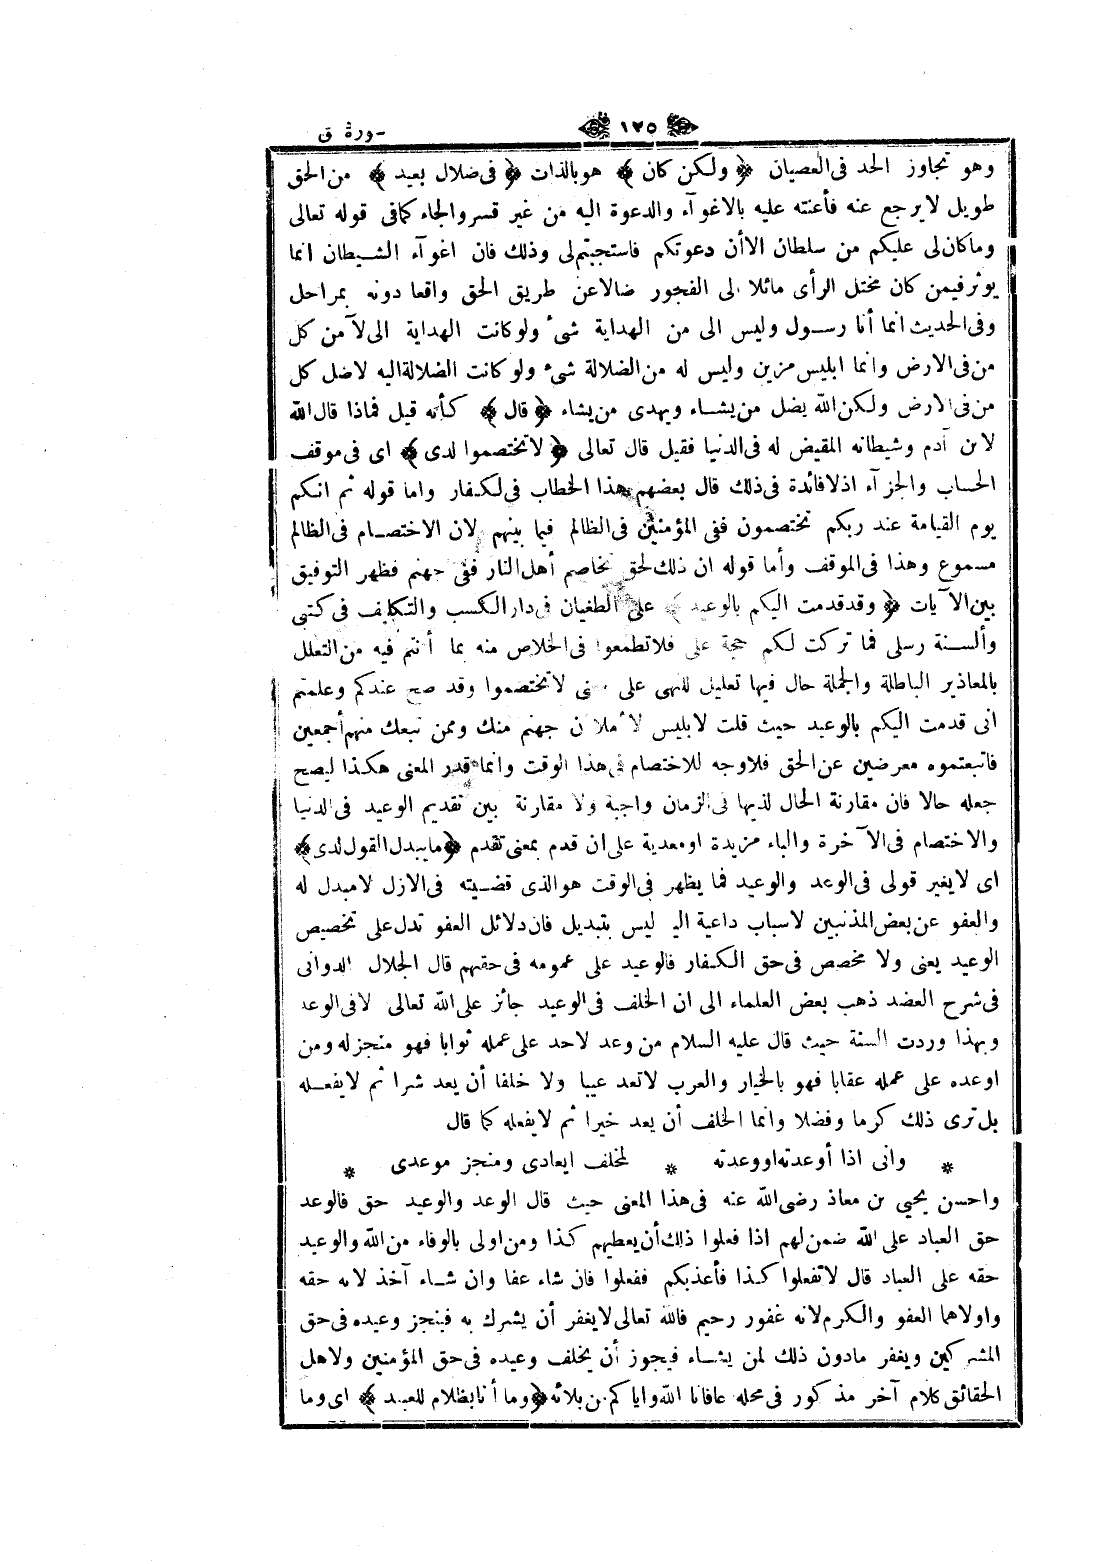 سورة ق ١٢٥
وهو تجاوز الحد فى العصيان ﴿ ولكن كان ﴾ هو بالذات ﴿ فى ضلال بعيد ﴾ من الحق
طويل لا يرجع عنه فأعنته عليه بالاغوآء والدعوة اليه من غير قسر والجاء كما فى قوله تعالى
وما كان لى عليكم من سلطان الا أن دعوتكم فاستجبتم لى وذلك فان اغوآء الشيطان انما
يوثر فيمن كان مختل الرأى مائلا الى الفجور ضالا عن طريق الحق واقعا دونه بمراحل
وفى الحديث انما أنا رسول وليس الى من الهداية شىء ولو كانت الهداية الى لآمن كل
من فى الارض وانما ابليس مزين وليس له من الضلالة شىء ولو كانت الضلالة اليه لاضل كل
من فى الارض ولكن الله يضل من يشاء ويهدى من يشاء ﴿ قال ﴾ كأنه قيل فماذا قال الله
لابن آدم وشيطانه المقيض له فى الدنيا فقيل قال تعالى ﴿ لا تختصموا لدى ﴾ اى فى موقف
الحساب والجزآء اذ لا فائدة فى ذلك قال بعضهم هذا الخطاب فى لكفار واما قوله ثم انكم
يوم القيامة عند ربكم تختصمون ففى المؤمنين فى الظالم فيما بينهم لان الاختصام فى الظالم
مسموع وهذا فى الموقف وأما قوله ان ذلك لحق تخاصم أهل النار ففى جهنم فظهر التوفيق
بين الآيات ﴿ وقد قدمت اليكم بالوعيد ﴾ على الطغيان فى دار الكسب والتكليف فى كتبى
وألسنة رسلى فما تركت لكم حجة على فلا تطمعوا فى الخلاص منه بما أنتم فيه من التعلل
بالمعاذير الباطلة والجملة حال فيها تعليل للنهى على معنى لا تختصموا وقد صح عندكم وعلمتم
انى قدمت اليكم بالوعيد حيث قلت لابليس لأملان جهنم منك وممن تبعك منهم أجمعين
فاتبعتموه معرضين عن الحق فلا وجه للاختصام فى هذا الوقت وانما قدر المعنى هكذا ليصح
جعله حالا فان مقارنة الحال لذيها فى الزمان واجبة ولا مقارنة بين تقديم الوعيد فى الدنيا
والاختصام فى الآخرة والباء مزيدة او معدية على ان قدم بمعنى تقدم ﴿ ما يبدل القول لدى ﴾
اى لا يغير قولى فى الوعد والوعيد فما يظهر فى الوقت هو الذى قضيته فى الازل لا مبدل له
والعفو عن بعض المذنبين لاسباب داعية اليه ليس بتبديل فان دلائل العفو تدل على تخصيص
الوعيد يعنى ولا مخصص فى حق الكفار فالوعيد على عمومه فى حقهم قال الجلال الدوانى
فى شرح العضد ذهب بعض العلماء الى ان الخلف فى الوعيد جائز على الله تعالى لا فى الوعد
وبهذا وردت السنة حيث قال عليه السلام من وعد لاحد على عمله ثوابا فهو منجز له ومن
اوعده على عمله عقابا فهو بالخيار والعرب لا تعد عيبا ولا خلفا أن يعد شرا ثم لا يفعله
بل ترى ذلك كرما وفضلا وانما الخلف أن يعد خيرا ثم لا يفعله كما قال
* وانى اذا أوعدته او وعدته * لمخلف ايعادى ومنجز موعدى *
واحسن يحيى بن معاذ رضى الله عنه فى هذا المعنى حيث قال الوعد والوعيد حق فالوعد
حق العباد على الله ضمن لهم اذا فعلوا ذلك أن يعطيهم كذا ومن اولى بالوفاء من الله والوعيد
حقه على العباد قال لا تفعلوا كذا فأعذبكم ففعلوا فان شاء عفا وان شاء آخذ لانه حقه
واولاهما العفو والكرم لانه غفور رحيم فالله تعالى لا يغفر أن يشرك به فينجز وعيده فى حق
المشركين ويغفر مادون ذلك لمن يشاء فيجوز أن يخلف وعيده فى حق المؤمنين ولاهل
الحقائق كلام آخر مذكور فى محله عافانا الله واياكم من بلائه ﴿ وما أنا بظلام للعبيد ﴾ اى وما